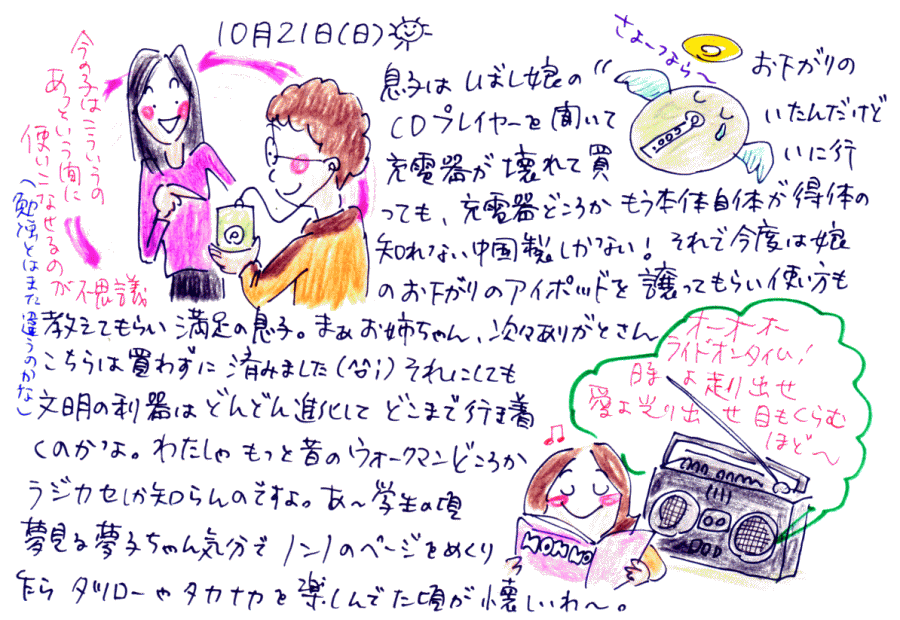 10月21日(日)
さよーつなら〜
今の子はこういうの
あっという間に
使いこなせるの
が不思議
(勉強とはまた違うのかな)
息子は しばし娘の お下がりの
CDプレイヤーを聞いて いたんだけど
充電器が壊れて買 いに行
っても、充電器どころか もう本体自体が得体の
知れない中国製しかない! それで今度は娘
のお下がりのアイポッドを譲ってもらい使い方も
教えてもらい満足の息子。まぁお姉ちゃん、次々ありがとさん
こちらは買わずに済みました(^^;) それにしても
文明の利器はどんどん進化して どこまで行き着
くのかよ。わたしゃもっと昔のウォークマンどころか
ラジカセしか知らんのですよ。あ〜学生の頃
夢見る夢子ちゃん気分で ノンノのページをめくり
ながら タツローやタカナカを楽しんでた頃が懐しいわ〜。
オーオーオー
ライドオンタイム!
時よ走り出せ
愛よ光り出せ 目もくらむ
ほど〜
NONNO